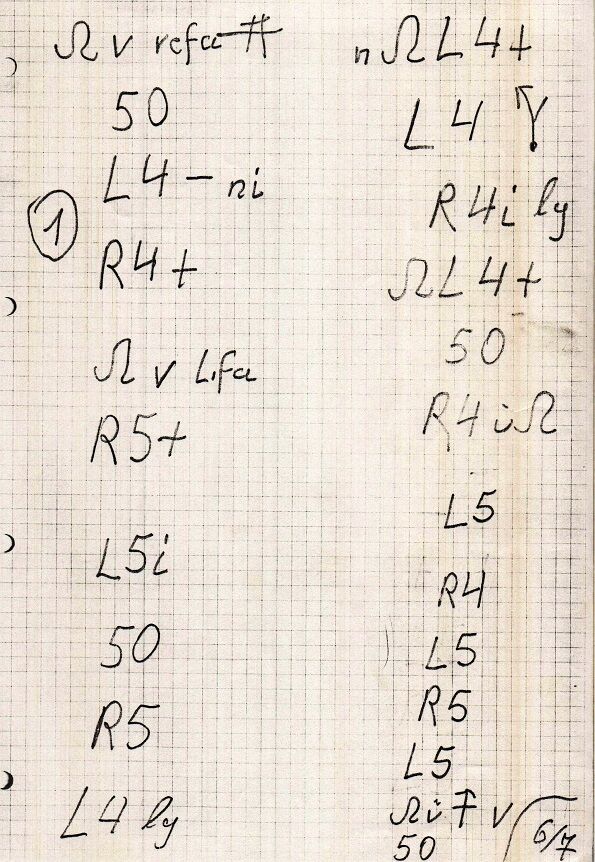 Ω v refa #
50
L4 - ni
①
R4+
Ω v L.fa
R5+
L5i
50
R5
L4 ly
n Ω L4+
L4
R4i ly
Ω L4+
50
R4 i Ω
L5
R4
L5
R5
L5
Ω i v 6/7
50